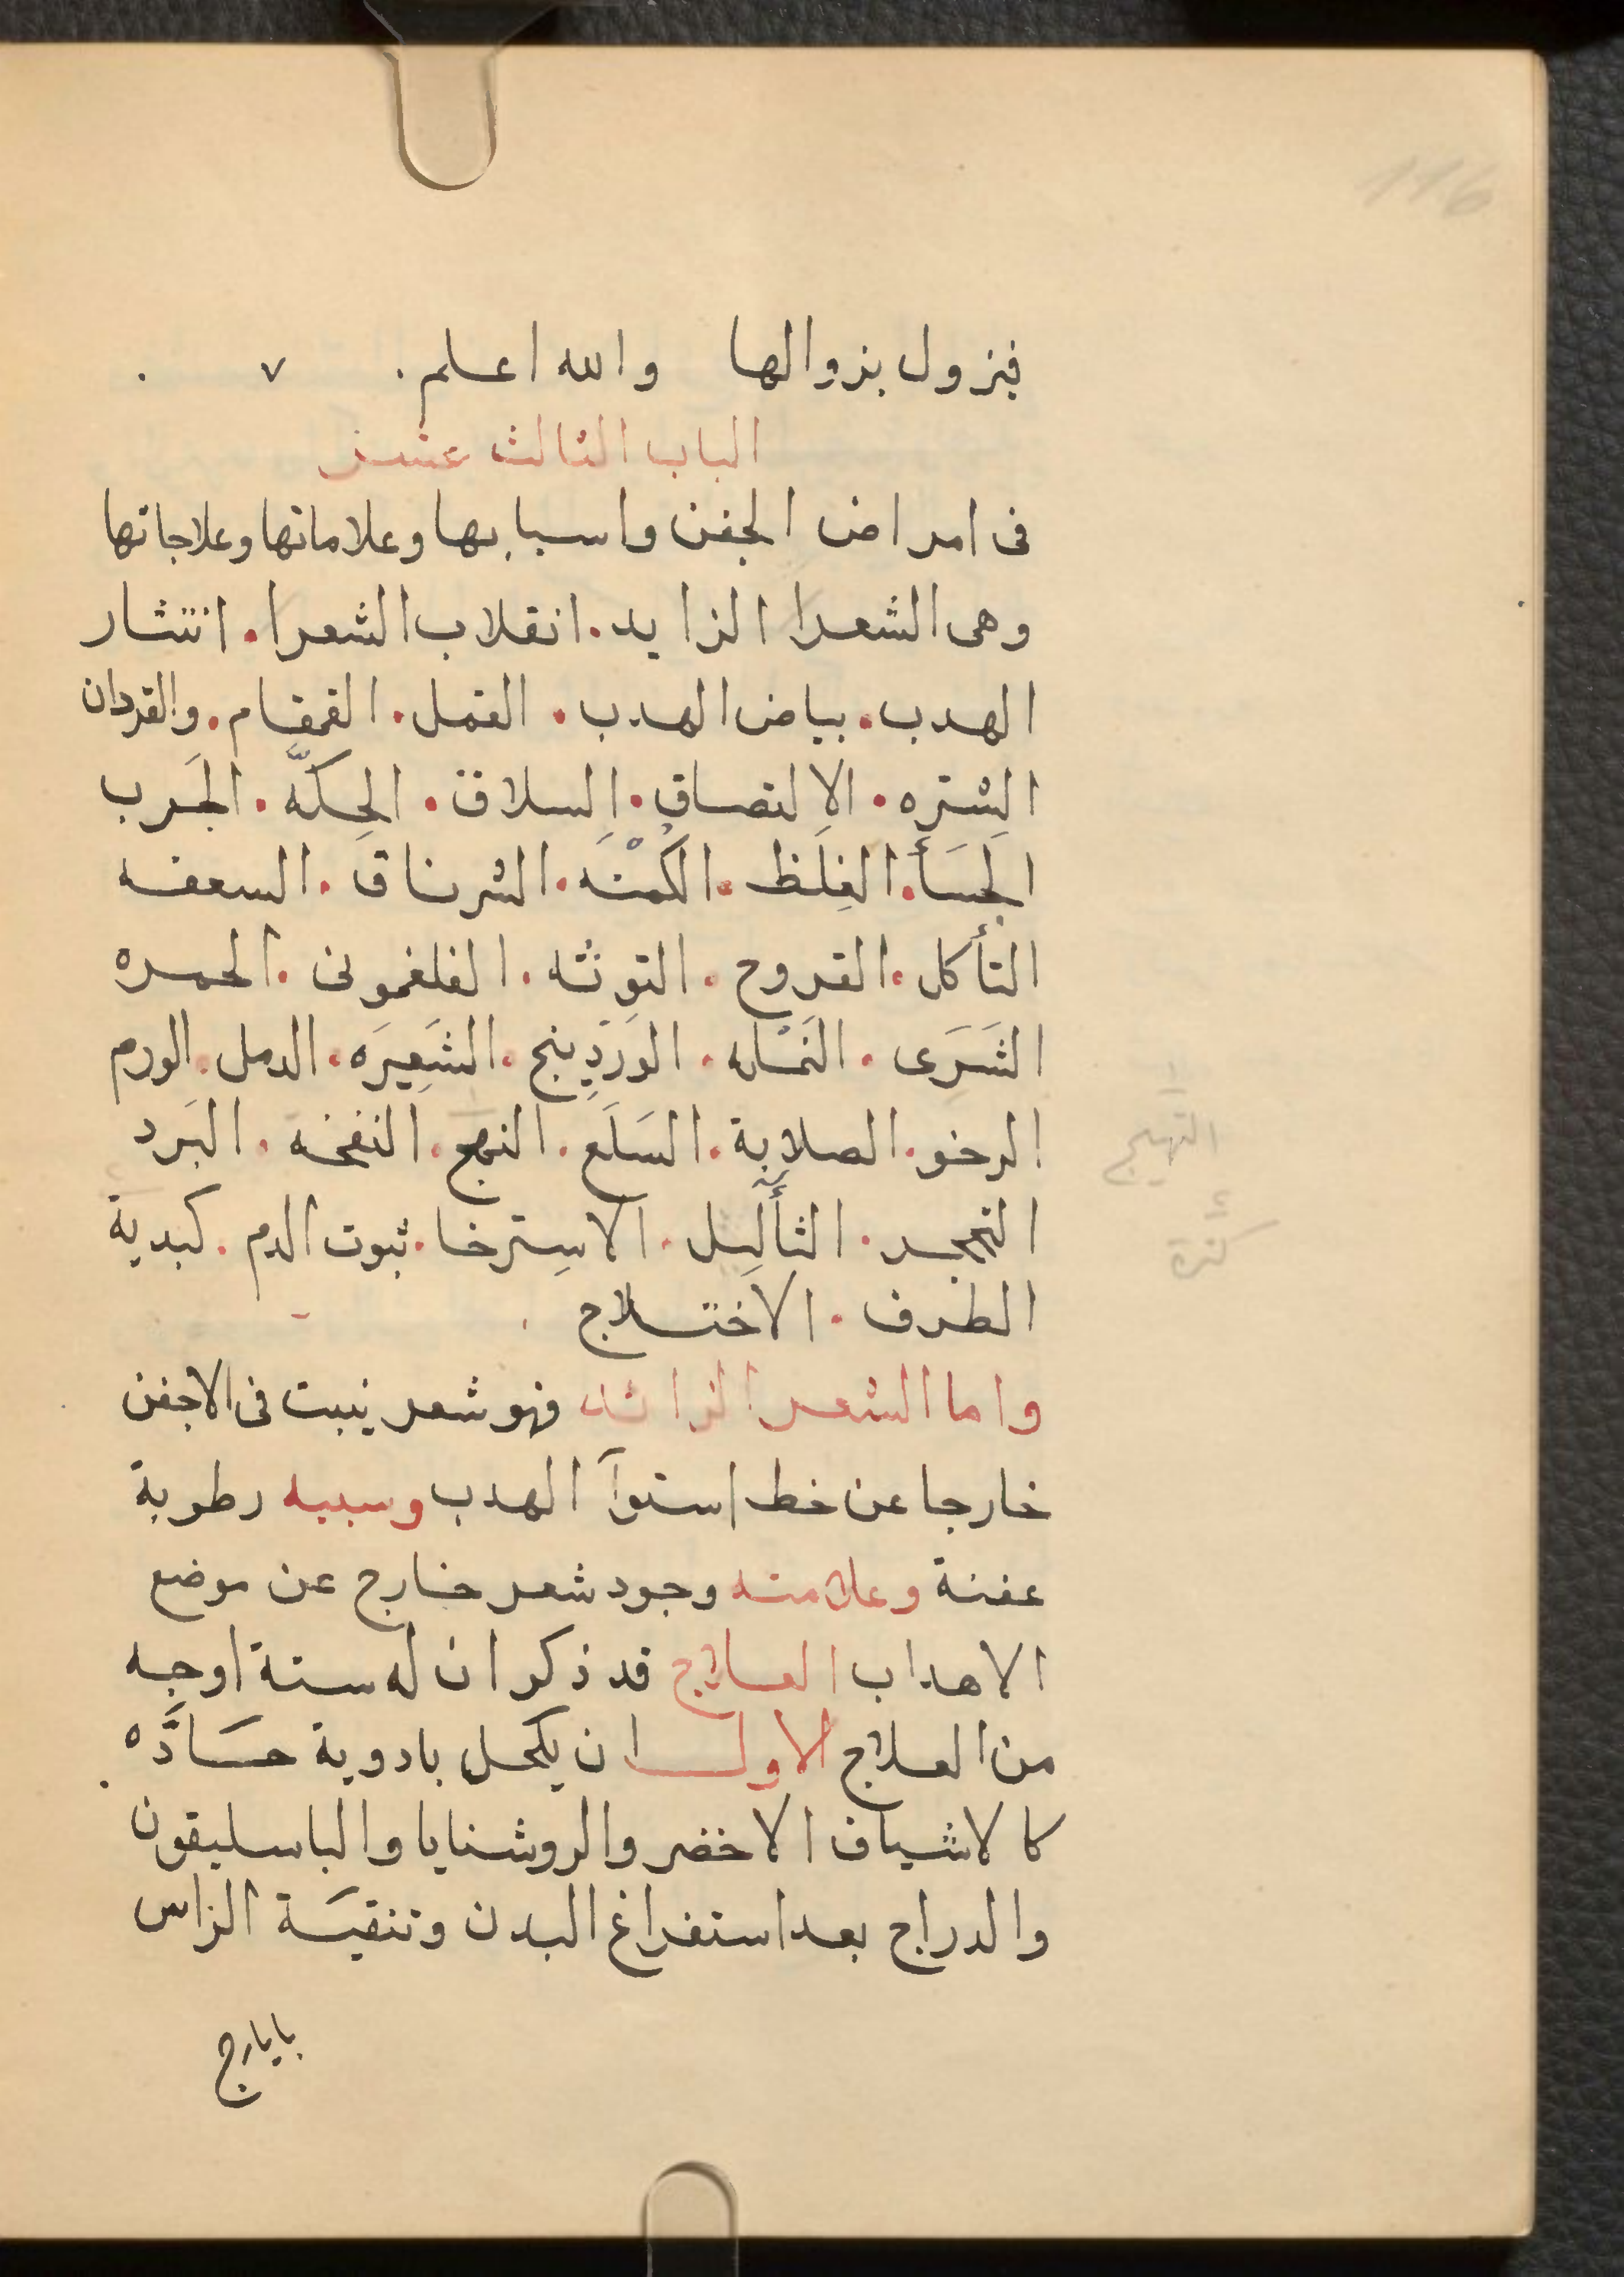 116
فيزول بزوالها والله اعلم .
الباب الثالث عشر
فى امراض الجفن واسبابها وعلاماتها وعلاجاتها
وهى الشعرا الزايد . انقلاب الشعرا . انتثار
الهدب . بياض الهدب . القمل . القمقام . والقردان
الشتره . الالتصاق . السلاق . الحِكّه . الجَرب
الجَسَأ . الغِلَظ . الكُمْنَه . الشرناق . السعفه
التأكل . القروح . التوثه . الفلغمونى . الحمره
الشَرَى . النَمْله . الوَردِينج . الشَعِيرَه . الدمل . الورم
الرخو . الصلابة . السَلَع . النهج . النفخه . البَرد
التحجر . الثأليل . الاسِترخا . ثبوت الدم . كبدية
الطرف . الاختلاج
واما الشعر الزائد فهو شعر ينبت فى الاجفن
خارجا عن خط استوآ الهدب وسببه رطوبة
عفنة وعلامته وجود شعر خارج عن موضع
الاهداب العلاج قد ذكر ان له ستة اوجه
من العلاج الاول ان يكحل بادوية حَادَّه
كالاشياف الاخضر والروشنايا والباسليقون
والدراج بعد استفراغ البدن وتنقيَة الراس
بايارج
التهيج